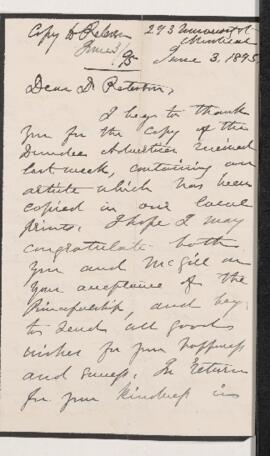 Copy to Peterson
June 3/95
293 University St
Montreal
June 3. 1895
Dear Dr Peterson,
I beg to thank
you for the copy of the
Dundee Advertiser received
last week, containing an
article which has been
copied in our local
prints. I hope I may
congratulate both
you and McGill on
your acceptance of the
Principalship, and beg
to send all good
wishes for your happiness
and success. In return
for your kindness in